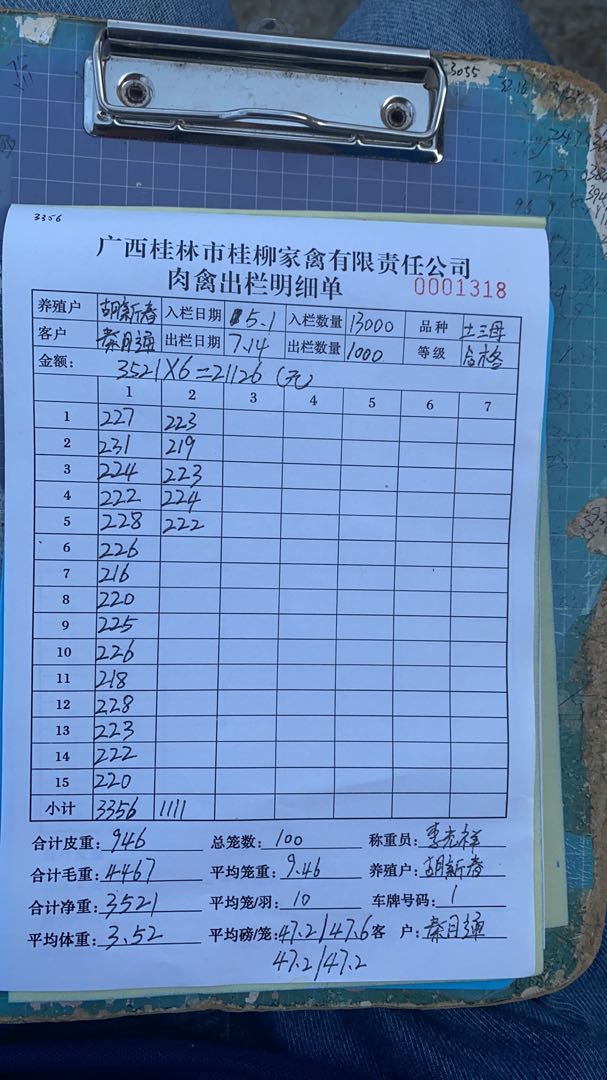 3055
3356
广西桂林市桂柳家禽有限责任公司
肉禽出栏明细单 0001318
养殖户 胡新春 入栏日期 5.1 入栏数量 13000 品种 土三母
客户 秦月通 出栏日期 7.14 出栏数量 1000 等级 合格
金额: 3521X6=21126(元)
1 2 3 4 5 6 7
1 227 223
2 231 219
3 224 223
4 222 224
5 228 222
6 226
7 216
8 220
9 225
10 226
11 218
12 228
13 223
14 222
15 220
小计 3356 1111
合计皮重: 946 总笼数: 100 称重员: 李光祥
合计毛重: 4467 平均笼重: 9.46 养殖户: 胡新春
合计净重: 3521 平均笼/羽: 10 车牌号码: 1
平均体重: 3.52 平均磅/笼: 47.2/47.6 客 户: 秦月通
47.2/47.2